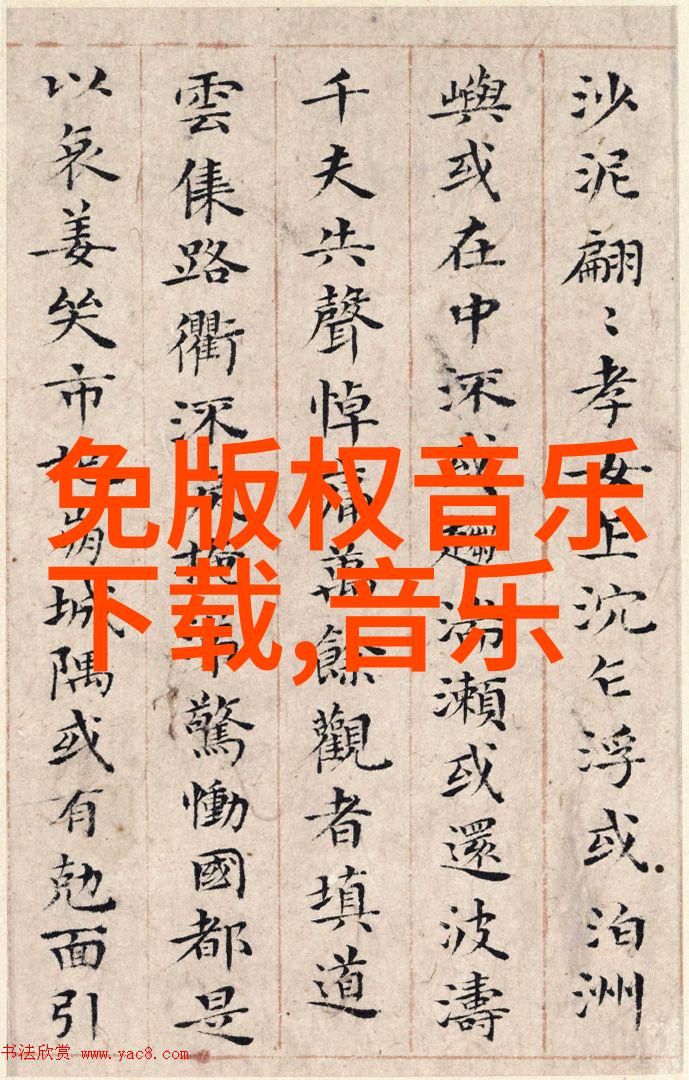 沙泥翩〻孝女上沉浮或泊洲
嶼或在中深或趨湍瀨或還波濤
千夫共聲悼痛萬餘觀者填道
雲集路衢深掩驚慟國都是
以哀姜哭市杞崩城隅或有勀面引
免版权音乐
下载,音乐
书法欣赏 www.yac8.com